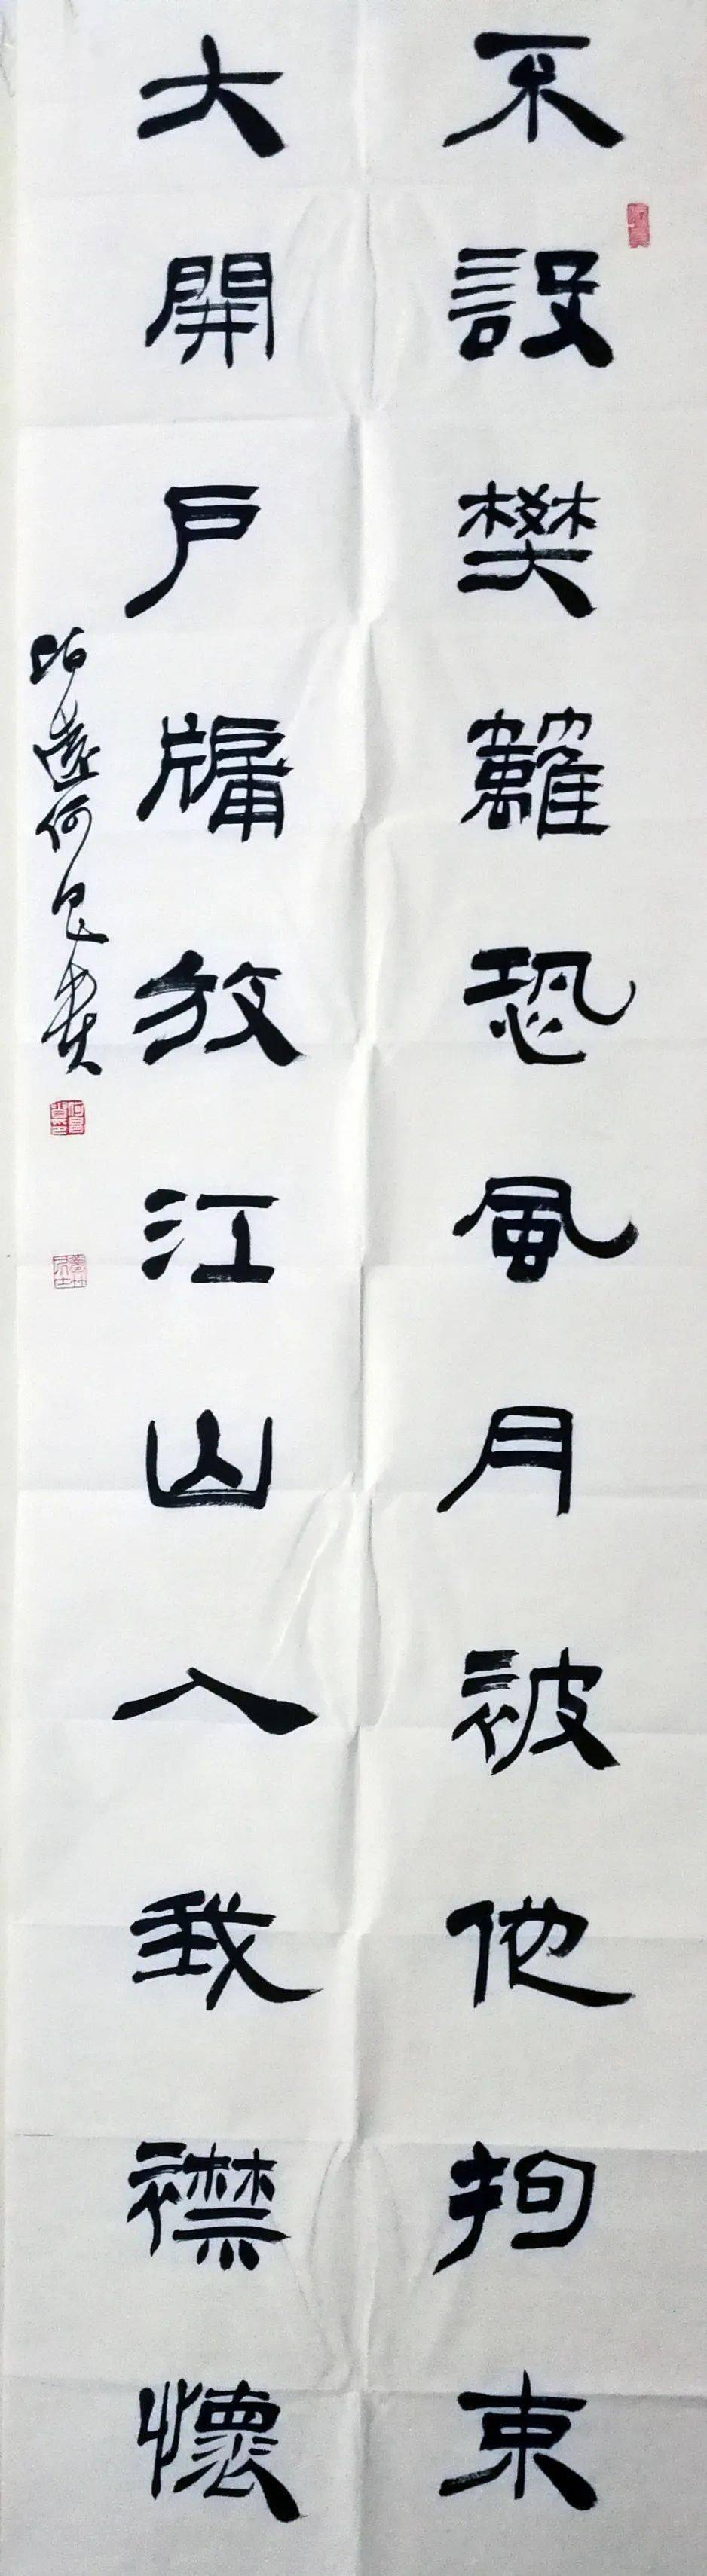 不設樊籬恐風月被他拘束
大開戶牖放江山入我襟懷